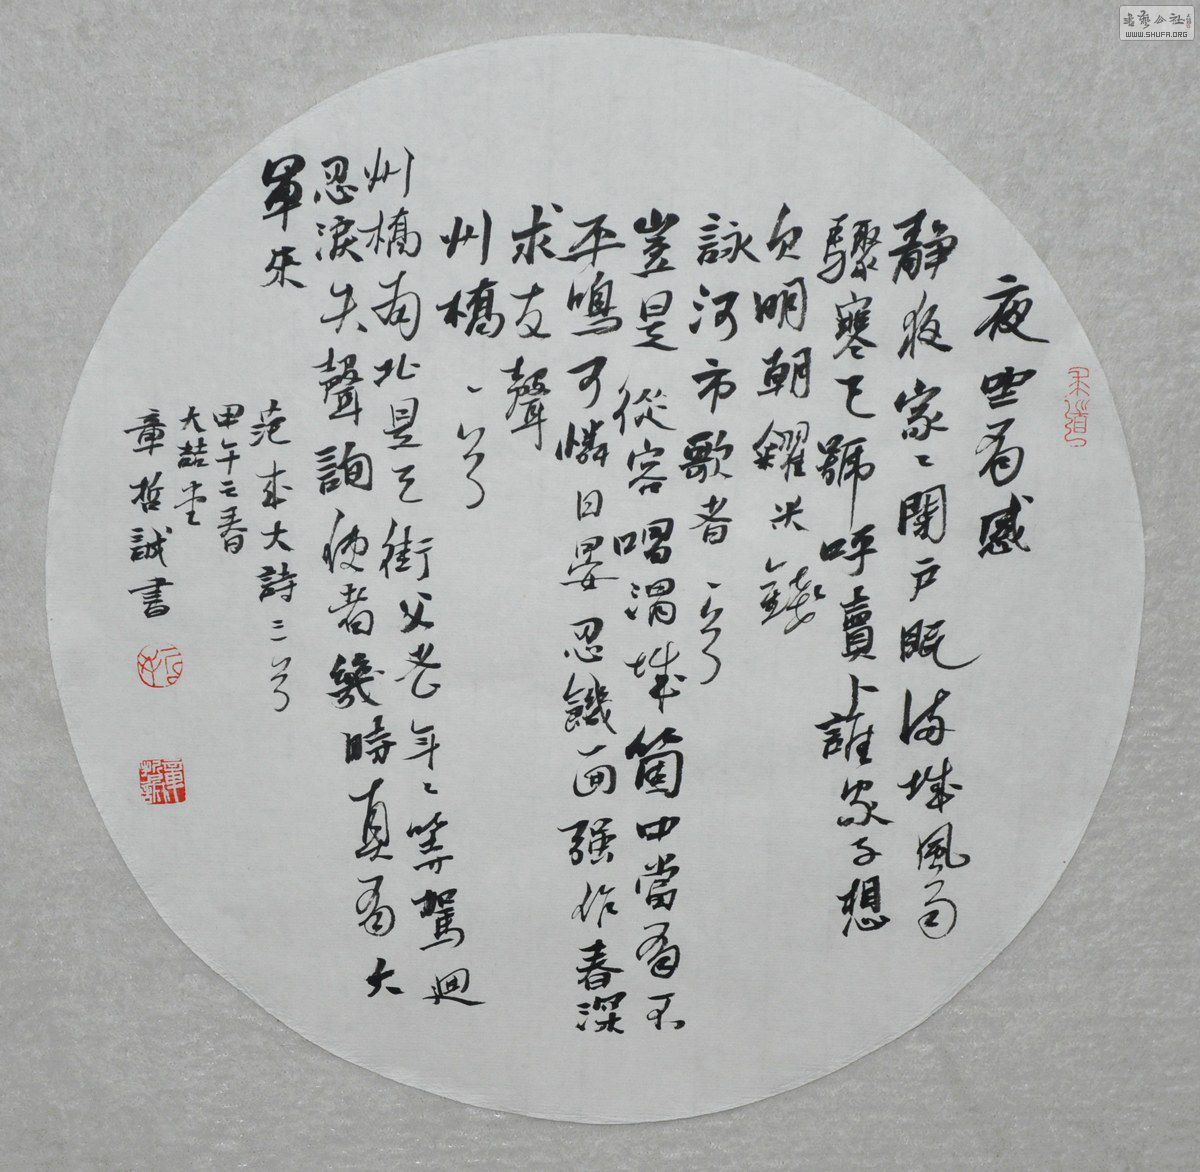 夜坐有感
靜夜家々閉戶眠滿城風雨
驟寒天號呼賣卜誰家子想
欠明朝糴米錢
詠河市歌者一首
豈是從容唱渭城箇中當有不
平鳴可憐日晏忍饑面強作春深
求友聲
州橋一首
州橋南北是天街父老年々等駕迴
忍淚失聲詢使者幾時真有六
軍來
范成大詩三首
甲午之春
大喆堂
章哲誠書
WWW.SHUFA.ORG